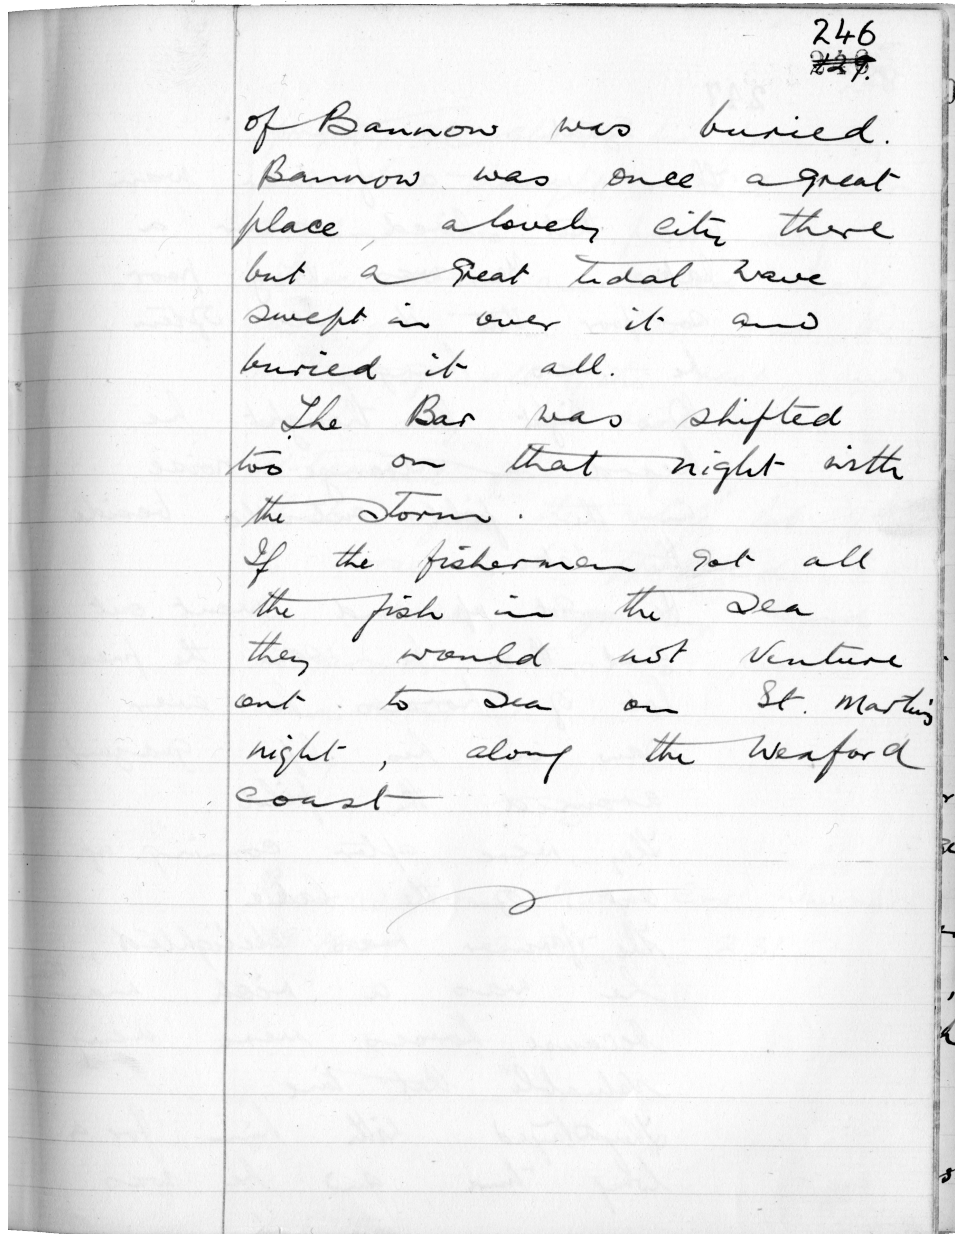 246
of Bannow was buried.
Bannow was once a great
place, a lovely city there
but a great tidal wave
swept in over it and
buried it all.
The Bar was shifted
too on that night with
the storm.
If the fishermen got all
the fish in the sea
they would not venture
out to sea on St. Martin's
night, along the Wexford
coast